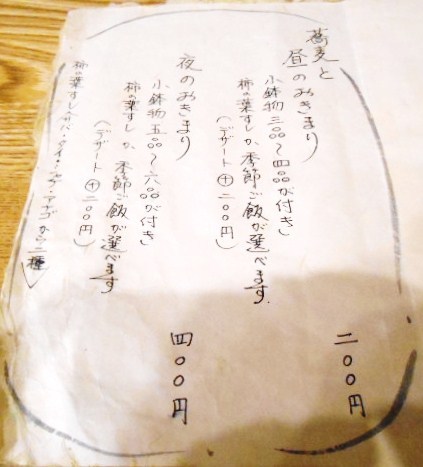 蕎麦と
昼のおきまり 二〇〇円
小鉢物三品〜四品が付き
柿の葉すしか季節ご飯が選べます.
(デザート⊕二〇〇円)
夜のおきまり 四〇〇円
小鉢物五品〜六品が付き
柿の葉すしか季節ご飯が選べます
(デザート⊕二〇〇円)
柿の葉すし(サバ・タイ・から二種)